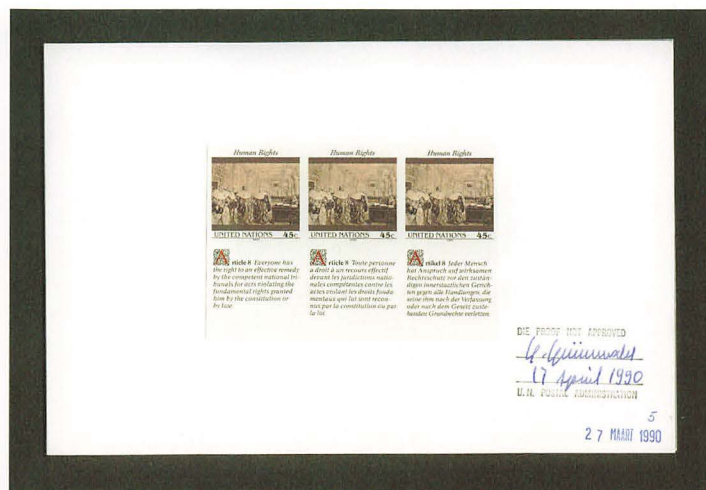 Human Rights
UNITED NATIONS 45c
Article 8 Everyone has
the right to an effective remedy
by the competent national tri-
bunals for acts violating the
fundamental rights granted
him by the constitution or
by law.
Human Rights
UNITED NATIONS 45c
Article 8 Toute personne
a droit à un recours effectif
devant les juridictions natio-
nales compétentes contre les
actes violant les droits fonda-
mentaux qui lui sont recon-
nus par la constitution ou par
la loi.
Human Rights
UNITED NATIONS 45c
Artikel 8 Jeder Mensch
hat Anspruch auf wirksamen
Rechtsschutz vor den zustän-
digen innerstaatlichen Gerich-
ten gegen alle Handlungen, die
seine ihm nach der Verfassung
oder nach dem Gesetz zuste-
henden Grundrechte verletzen.
DIE PROOF NOT APPROVED
17 April 1990
U.N. POSTAL ADMINISTRATION
5
27 MAART 1990